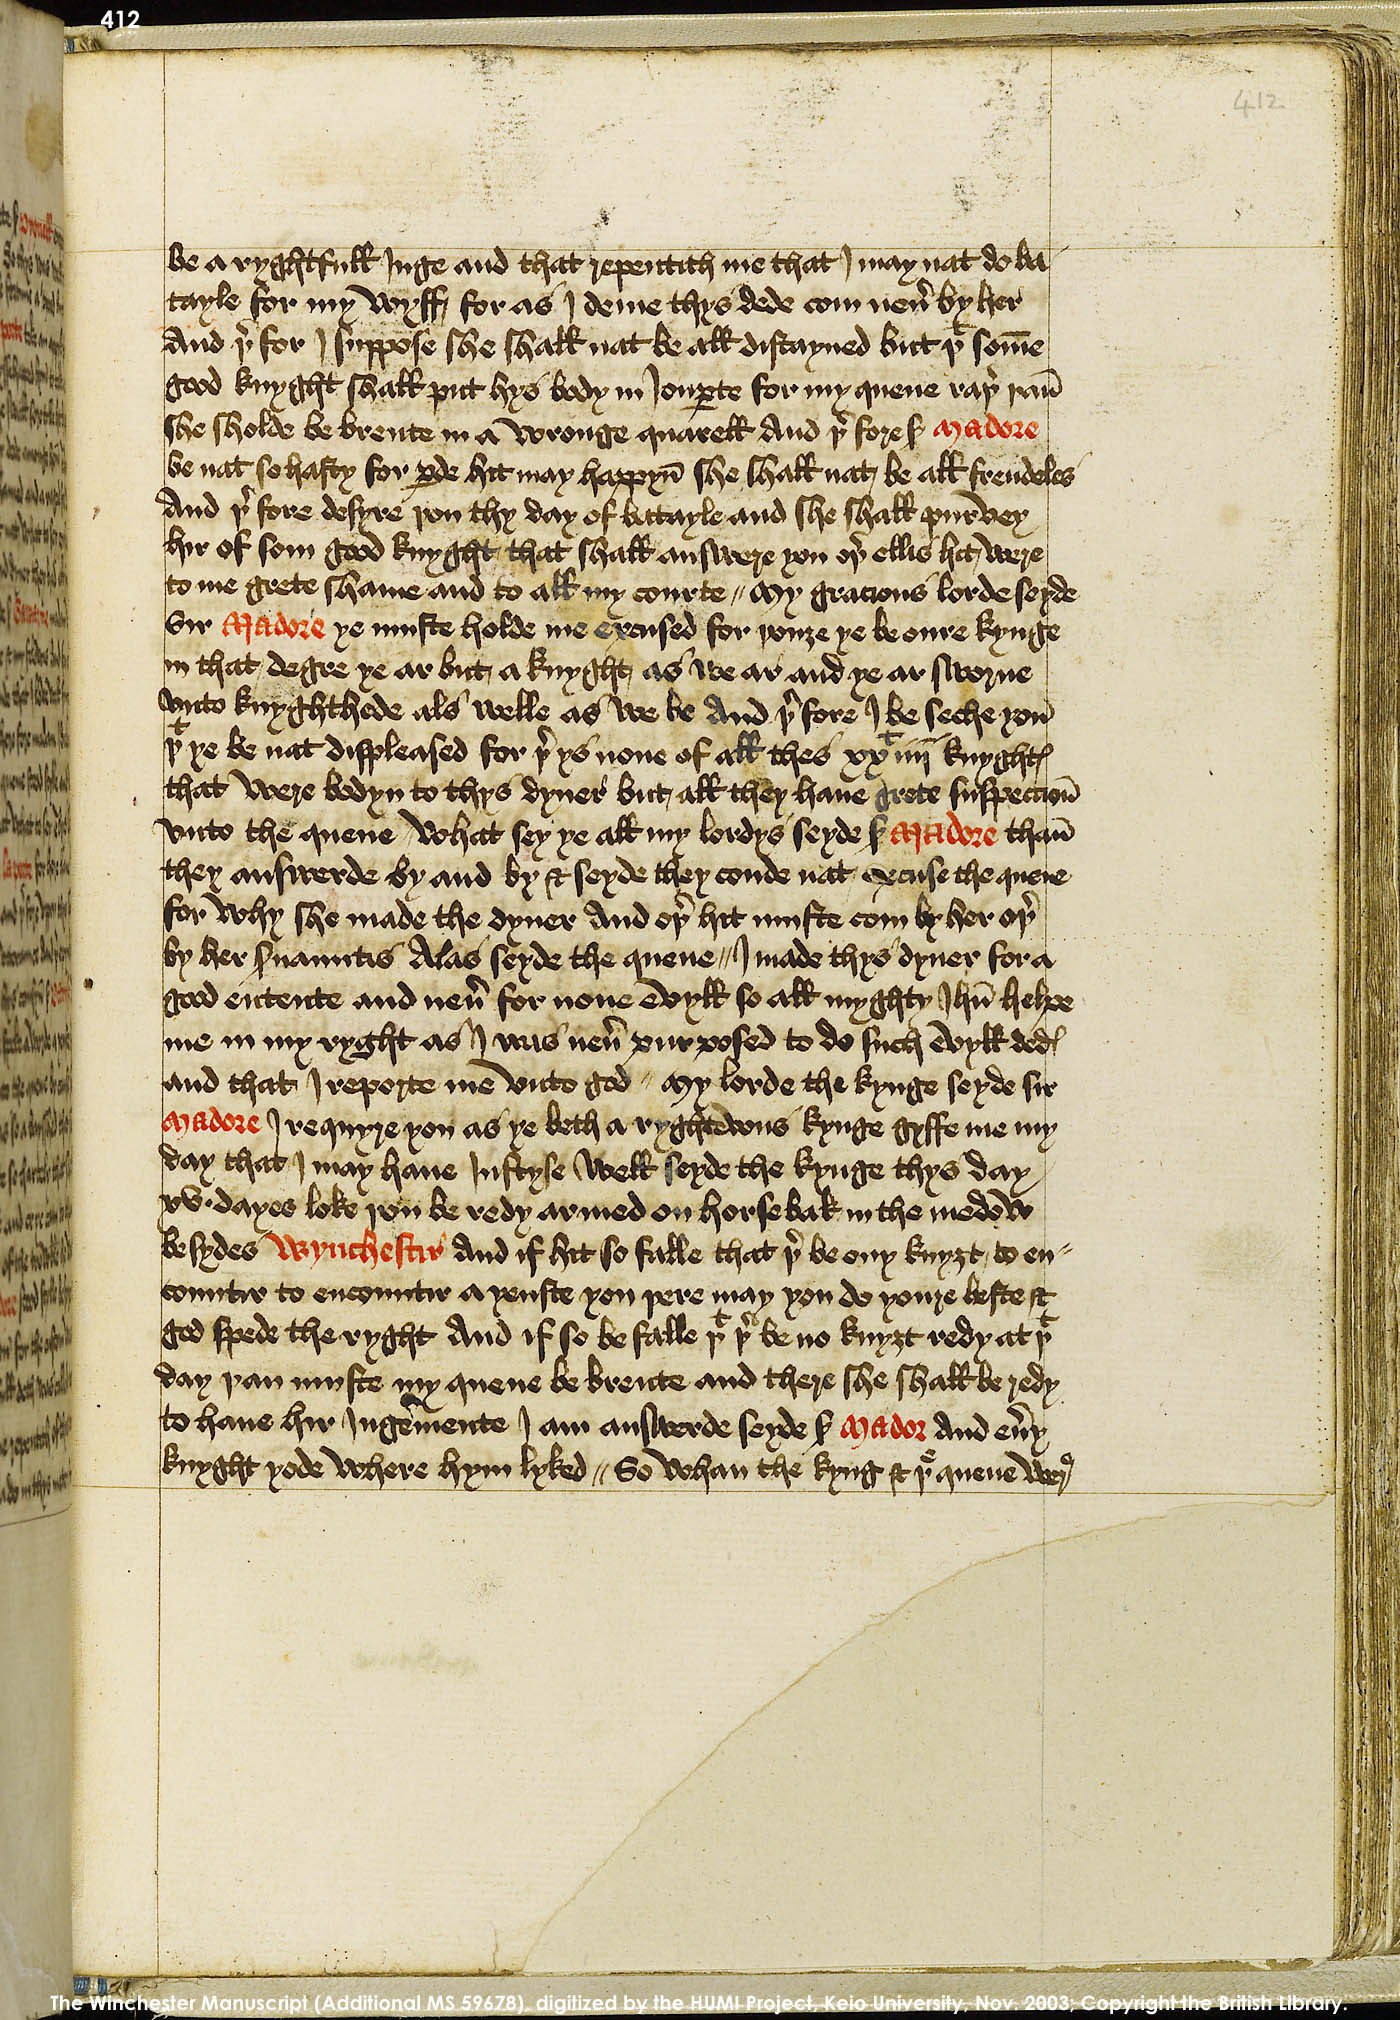 412
412
be a ryghtfull Juge and that repentith me that I may nat do ba
tayle for my wyff for as I deme thys dede com neu̕ by her
And þ̕ for I suppose she shall nat be all distayned but þͭ som̄e
good knyght shall put hys body in Jouꝑte for my quene raþ̕ þan̄
she sholde be brente in a wronge quarell And þ̕ fore ẜ Madore
be nat so hasty for ꝑde hit may happyn̄ she shall nat be all frendeles
And þ̕ fore desyre þou thy day of batayle and she shall purvey
hir of som good knyght that shall answere you oþ̕ ellis hit were
to me grete shame and to all my courte // My gracious lorde seyde
Sir Madore ye muste holde me excused for thouȝe ye be oure kynge
in that degre ye ar but a knyght as we ar and ye ar sworne
vnto knyghthode als welle as we be And þ̕ fore I be seche you
þͭ ye be nat displeased for þ̕ ys none of all thes xxͭ iiij knyghtꝭ
that were bodyn to thys dyner but all they haue grete suspeccion̄
vnto the quene What sey ye all my lordys seyde ẜ Madore than̄
they answerde by and by & seyde they coude nat excuse the quene
for why she made the dyner And oþ̕ hit muste com by her oþ̕
by her ẜuauntis Alas seyde the quene // I made thys dyner for a
good entente and neu̕ for none evyll so all myghty Jhū helpe
me in my ryght as I was neu̕ purposed to do such evyll dedꝭ
and that I reporte me vnto god // My lorde the kynge seyde sir
Madore I requyre you as ye beth a ryghtewus kynge gyffe me my
day that I may haue Justyse Well seyde the kynge thys day
xv. dayes loke þou be redy armed on horsebak in the medow
besydes Wynchestir And if hit so falle that þ̕ be ony knyȝt to en=
countir to encountir ayenste you þere may you do youre beste &
god spede the ryght And if so be falle þͭ þ̕ be no knyȝt redy at þͭ
day þan muste my quene be brente and there she shall be redy
to haue hir Jugemente I am answerde seyde ẜ Mador And eu̕y
knyght yode where hym lyked // So whan the kyng & þͤ quene werꝭ
The Winchester Manuscript (Additional MS 59678), digitized by the HUMI Project, Keio University, Nov. 2003; Copyright the British Library.